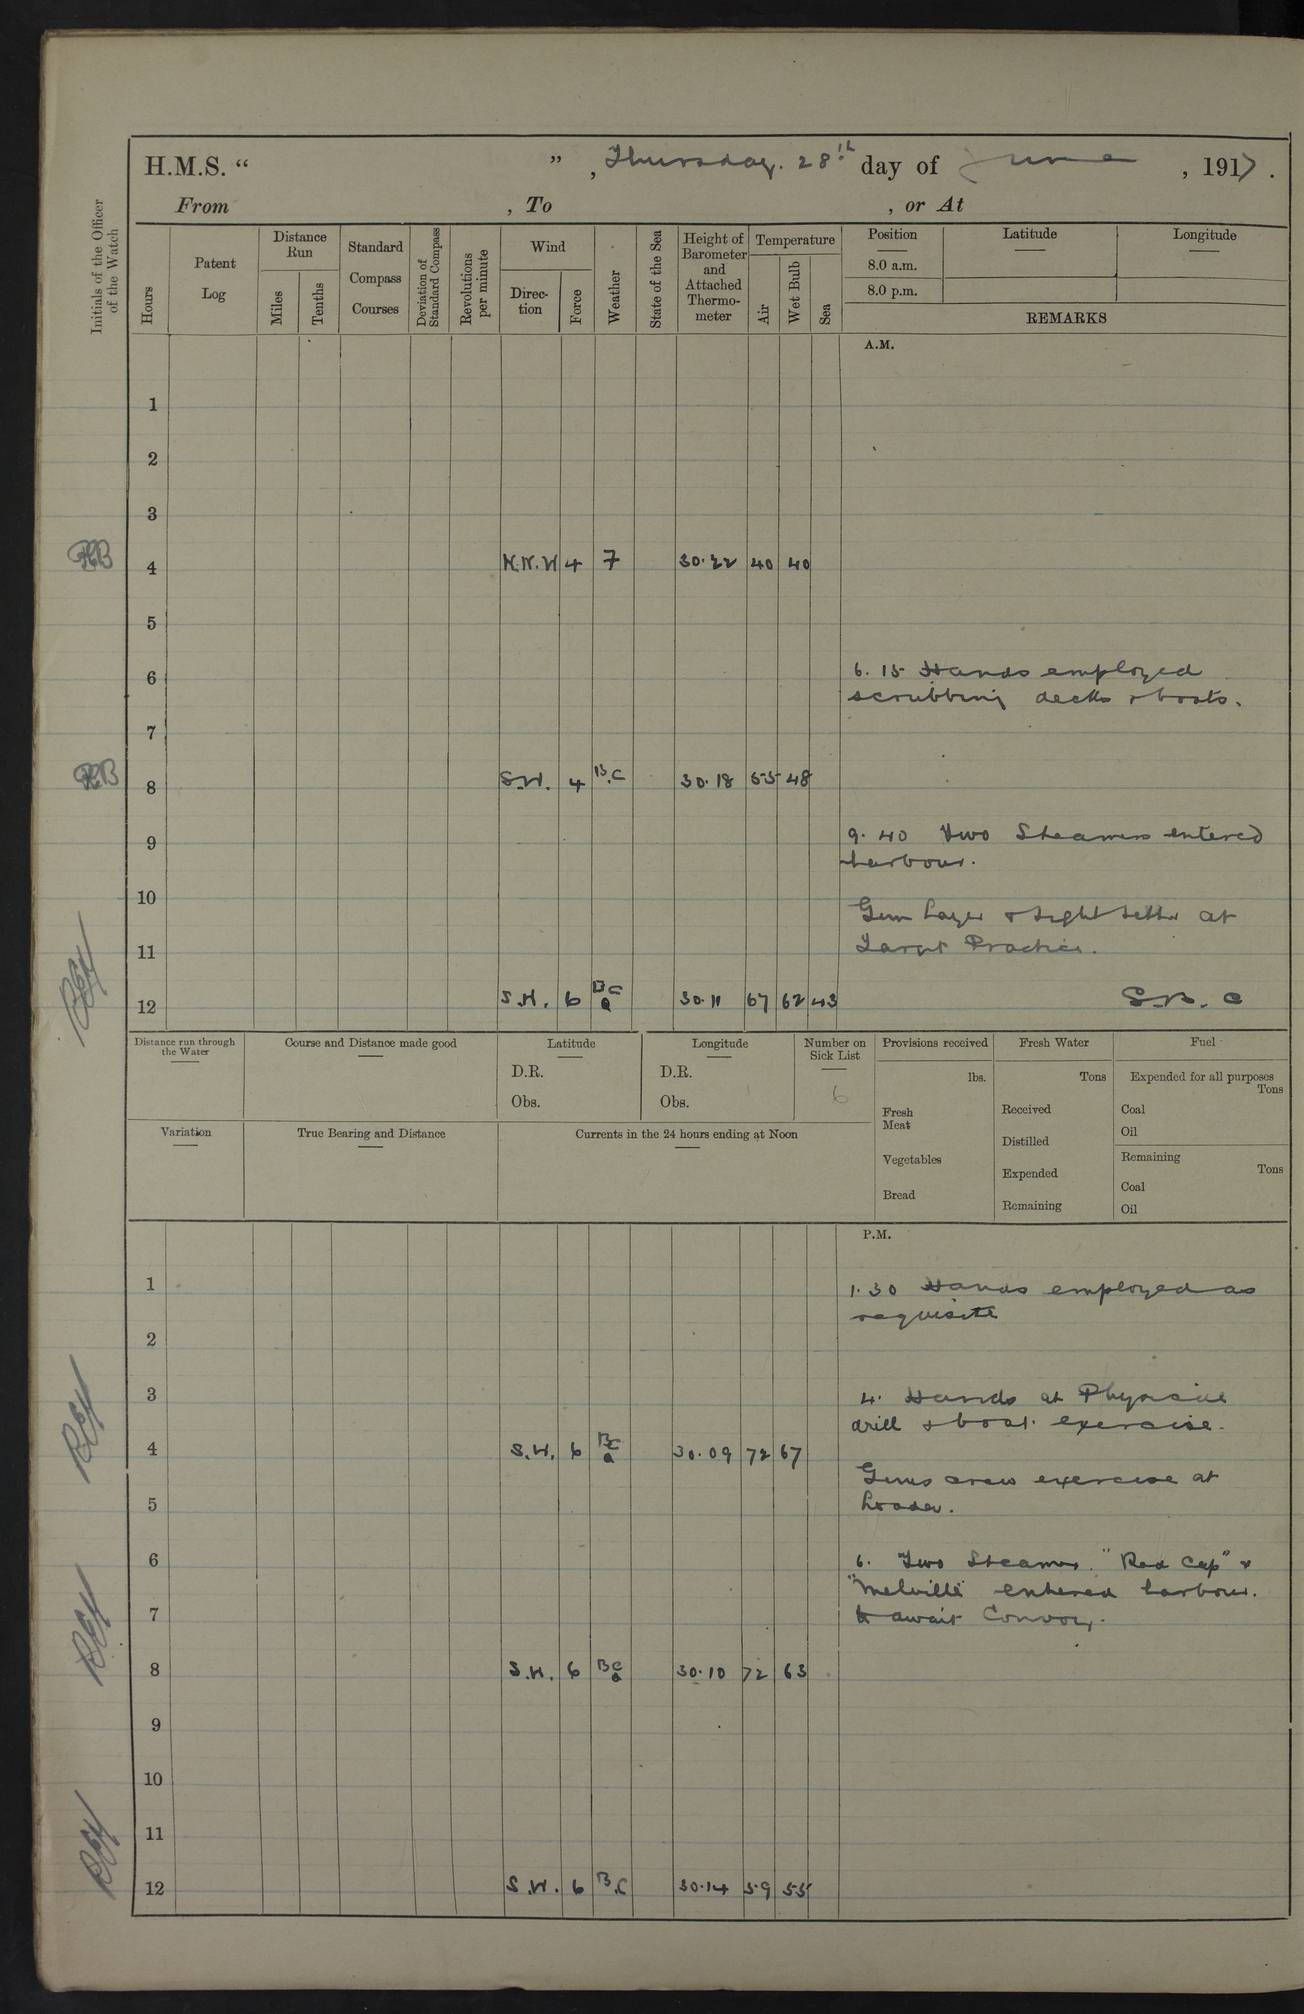 H.M.S. “ ” , Thursday. 28th day of June , 1917.
From , To , or At
Initials of the Officer of the Watch
Hours
Patent Log
Distance Run
Miles
Tenths
Standard Compass Courses
Deviation of Standard Compass
Revolutions per minute
Wind
Direction
Force
Weather
State of the Sea
Height of Barometer and Attached Thermometer
Temperature
Air
Wet Bulb
Sea
Position
8.0 a.m.
8.0 p.m.
Latitude
Longitude
REMARKS
A.M.
1
2
3
4 N.N.W 4 7 30.22 40 40
5
6 6.15 Hands employed
scrubbing decks & boats.
7
8 S.W. 4 B.C 30.18 55 48
9 9.40 Two Steamers entered
harbour.
10 Gun Layer & Sight setter at
11 Target Practice.
12 S.W. 6 BC 30.11 67 62 43
Distance run through the Water
Course and Distance made good
Latitude
D.R.
Obs.
Longitude
D.R.
Obs.
Number on Sick List
6
Provisions received
lbs.
Fresh Meat
Vegetables
Bread
Fresh Water
Tons
Received
Distilled
Expended
Remaining
Fuel
Expended for all purposes
Tons
Coal
Oil
Remaining
Tons
Coal
Oil
Variation
True Bearing and Distance
Currents in the 24 hours ending at Noon
P.M.
1 1.30 Hands employed as
requisite
2
3 4. Hands at Physical
drill & boat exercise.
4 S.W. 6 BC 30.09 72 67
Guns crew exercise at
5 Loader.
6 6. Two Steamers "Red Cap" &
"Melville" entered harbour.
7 to await Convoy.
8 S.W. 6 BC 30.10 72 63
9
10
11
12 S.W. 6 B.C 30.14 59 55